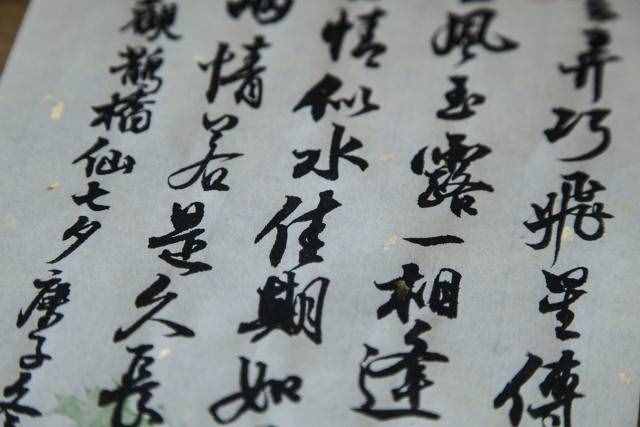 弄巧飛星傳
風玉露一相逢
情似水佳期如
兩情若是久長
觀鵲橋仙七夕庚子冬